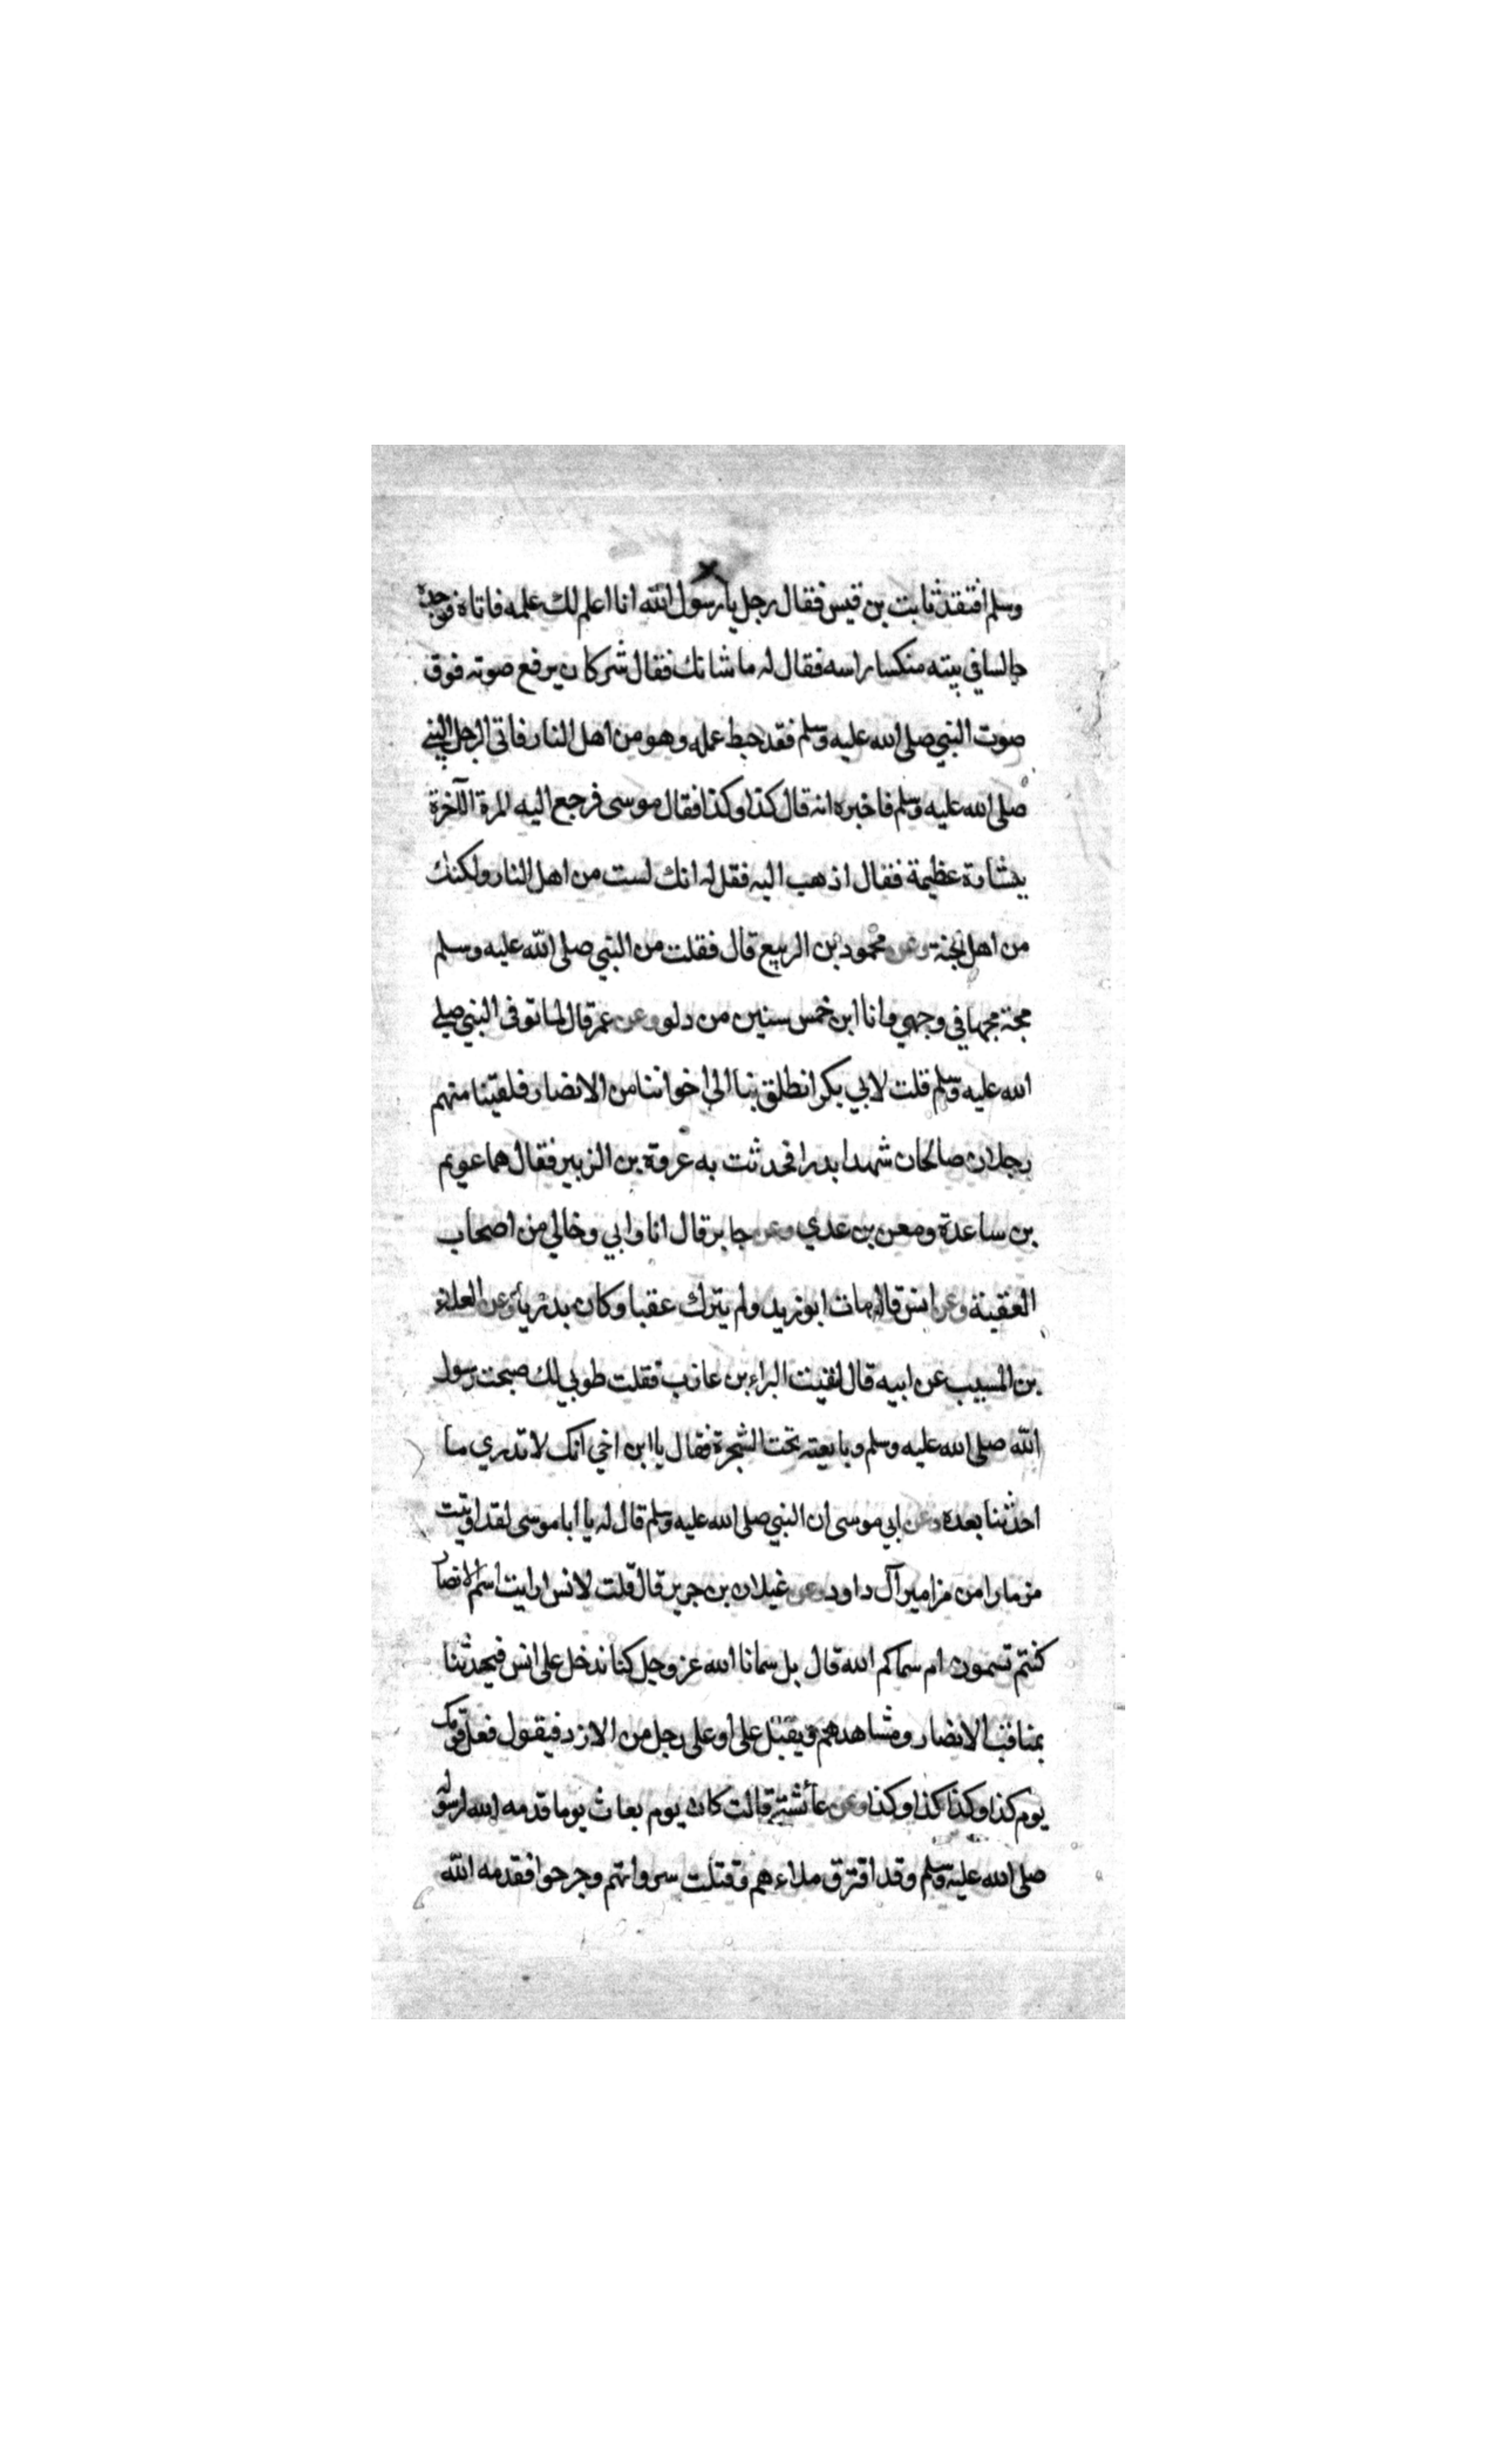 وسلم افتقد ثابت بن قيس فقال رجل يا رسول الله انا اعلم لك علمه فاتاه فوجده
جالسا في بيته منكسا راسه فقال له ما شانك فقال شر كان يرفع صوته فوق
صوت النبي صلى الله عليه وسلم فقد حبط عمله وهو من اهل النار فاتى الرجل النبي
صلى الله عليه وسلم فاخبره انه قال كذا وكذا فقال موسى فرجع اليه المرة الآخرة
ببشارة عظيمة فقال اذهب اليه فقل له انك لست من اهل النار ولكنك
من اهل الجنة وعن محمود بن الربيع قال فقلت من النبي صلى الله عليه وسلم
مجة مجها في وجهي وانا ابن خمس سنين من دلو وعن عمر قال لما توفى النبي صلى
الله عليه وسلم قلت لابي بكر انطلق بنا الى اخواننا من الانصار فلقينا منهم
رجلان صالحان شهدا بدرا فحدثت به عروة بن الزبير فقال هما عويم
بن ساعدة ومعن بن عدي وعن جابر قال انا وابي وخالي من اصحاب
العقبة وعن انس قال مات ابو زيد ولم يترك عقبا وكان بدريا وعن العلاء
بن المسيب عن ابيه قال لقيت البراء بن عازب فقلت طوبي لك صحبت رسول
الله صلى الله عليه وسلم وبايعته تحت الشجرة فقال يا ابن اخي انك لا تدري ما
احدثنا بعده وعن ابي موسى ان النبي صلى الله عليه وسلم قال له يا ابا موسى لقد اوتيت
مزمارا من مزامير آل داود وعن غيلان بن جرير قال قلت لانس ارايت اسم الانصار
كنتم تسمون ام سماكم الله قال بل سمانا الله عز وجل كنا ندخل على انس فيحدثنا
بمناقب الانصار ومشاهدهم ويقبل على او على رجل من الازد فيقول فعل قومك
يوم كذا وكذا كذا وكذا وعن عائشة قالت كان يوم بعاث يوما قدمه الله لرسوله
صلى الله عليه وسلم وقد افترق ملاءهم وقتلت سرواتهم وجرحوا فقدمه الله